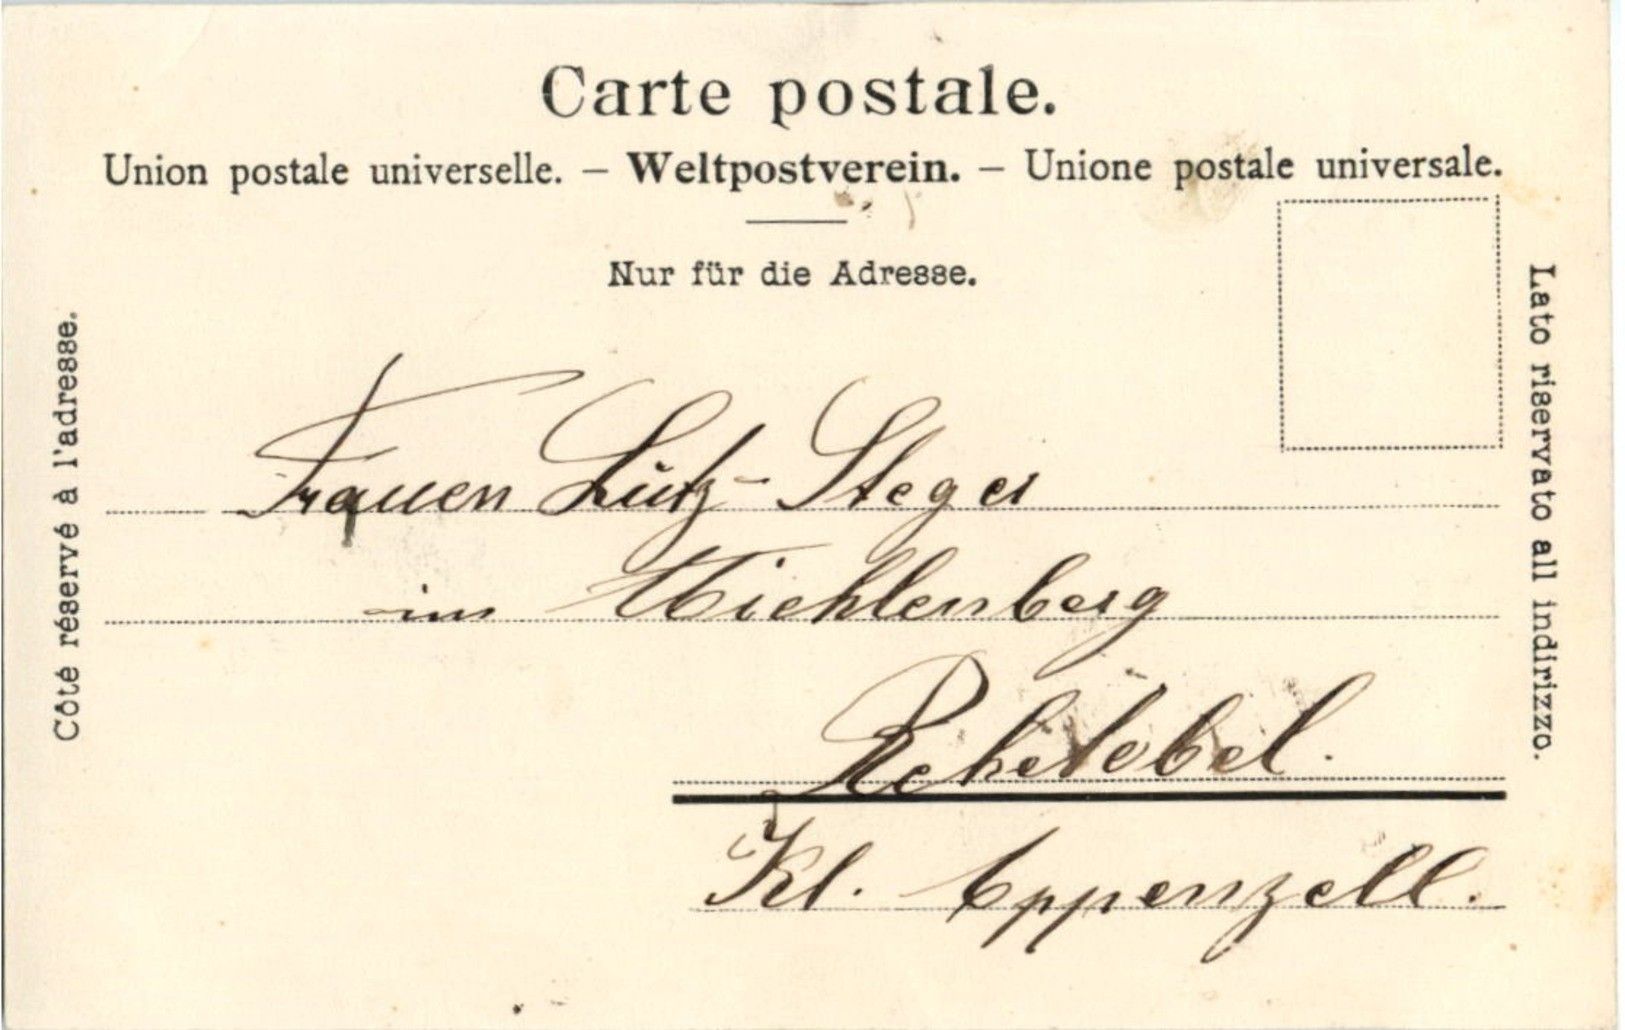 Carte postale.
Union postale universelle. – Weltpostverein. – Unione postale universale.
Nur für die Adresse.
Côté réservé à l'adresse.
Lato riservato all indirizzo.
Frauen Lutz-Steger
im
Rehetobel.
Kt. Appenzell.